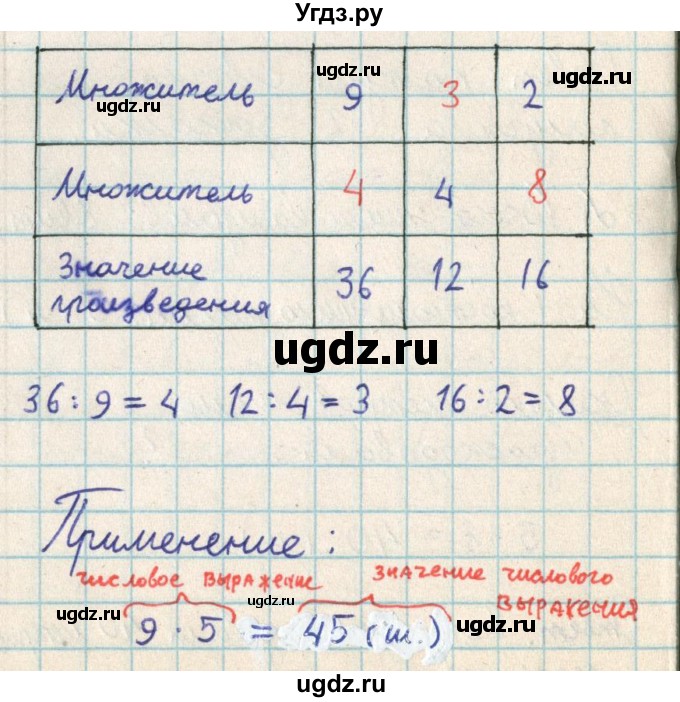 Угдз.ру
Множитель 9 3 2
ugdz.ru ugdz.ru ugdz.ru
Множитель 4 4 8
Значение произведения 36 12 16
ugdz.ru
36 : 9 = 4 12 : 4 = 3 16 : 2 = 8
Применение :
числовое выражение значение числового
выражения
ugdz.ru ugdz.ru ugdz.ru
9 · 5 = 45 (ш.)
ugdz.ru